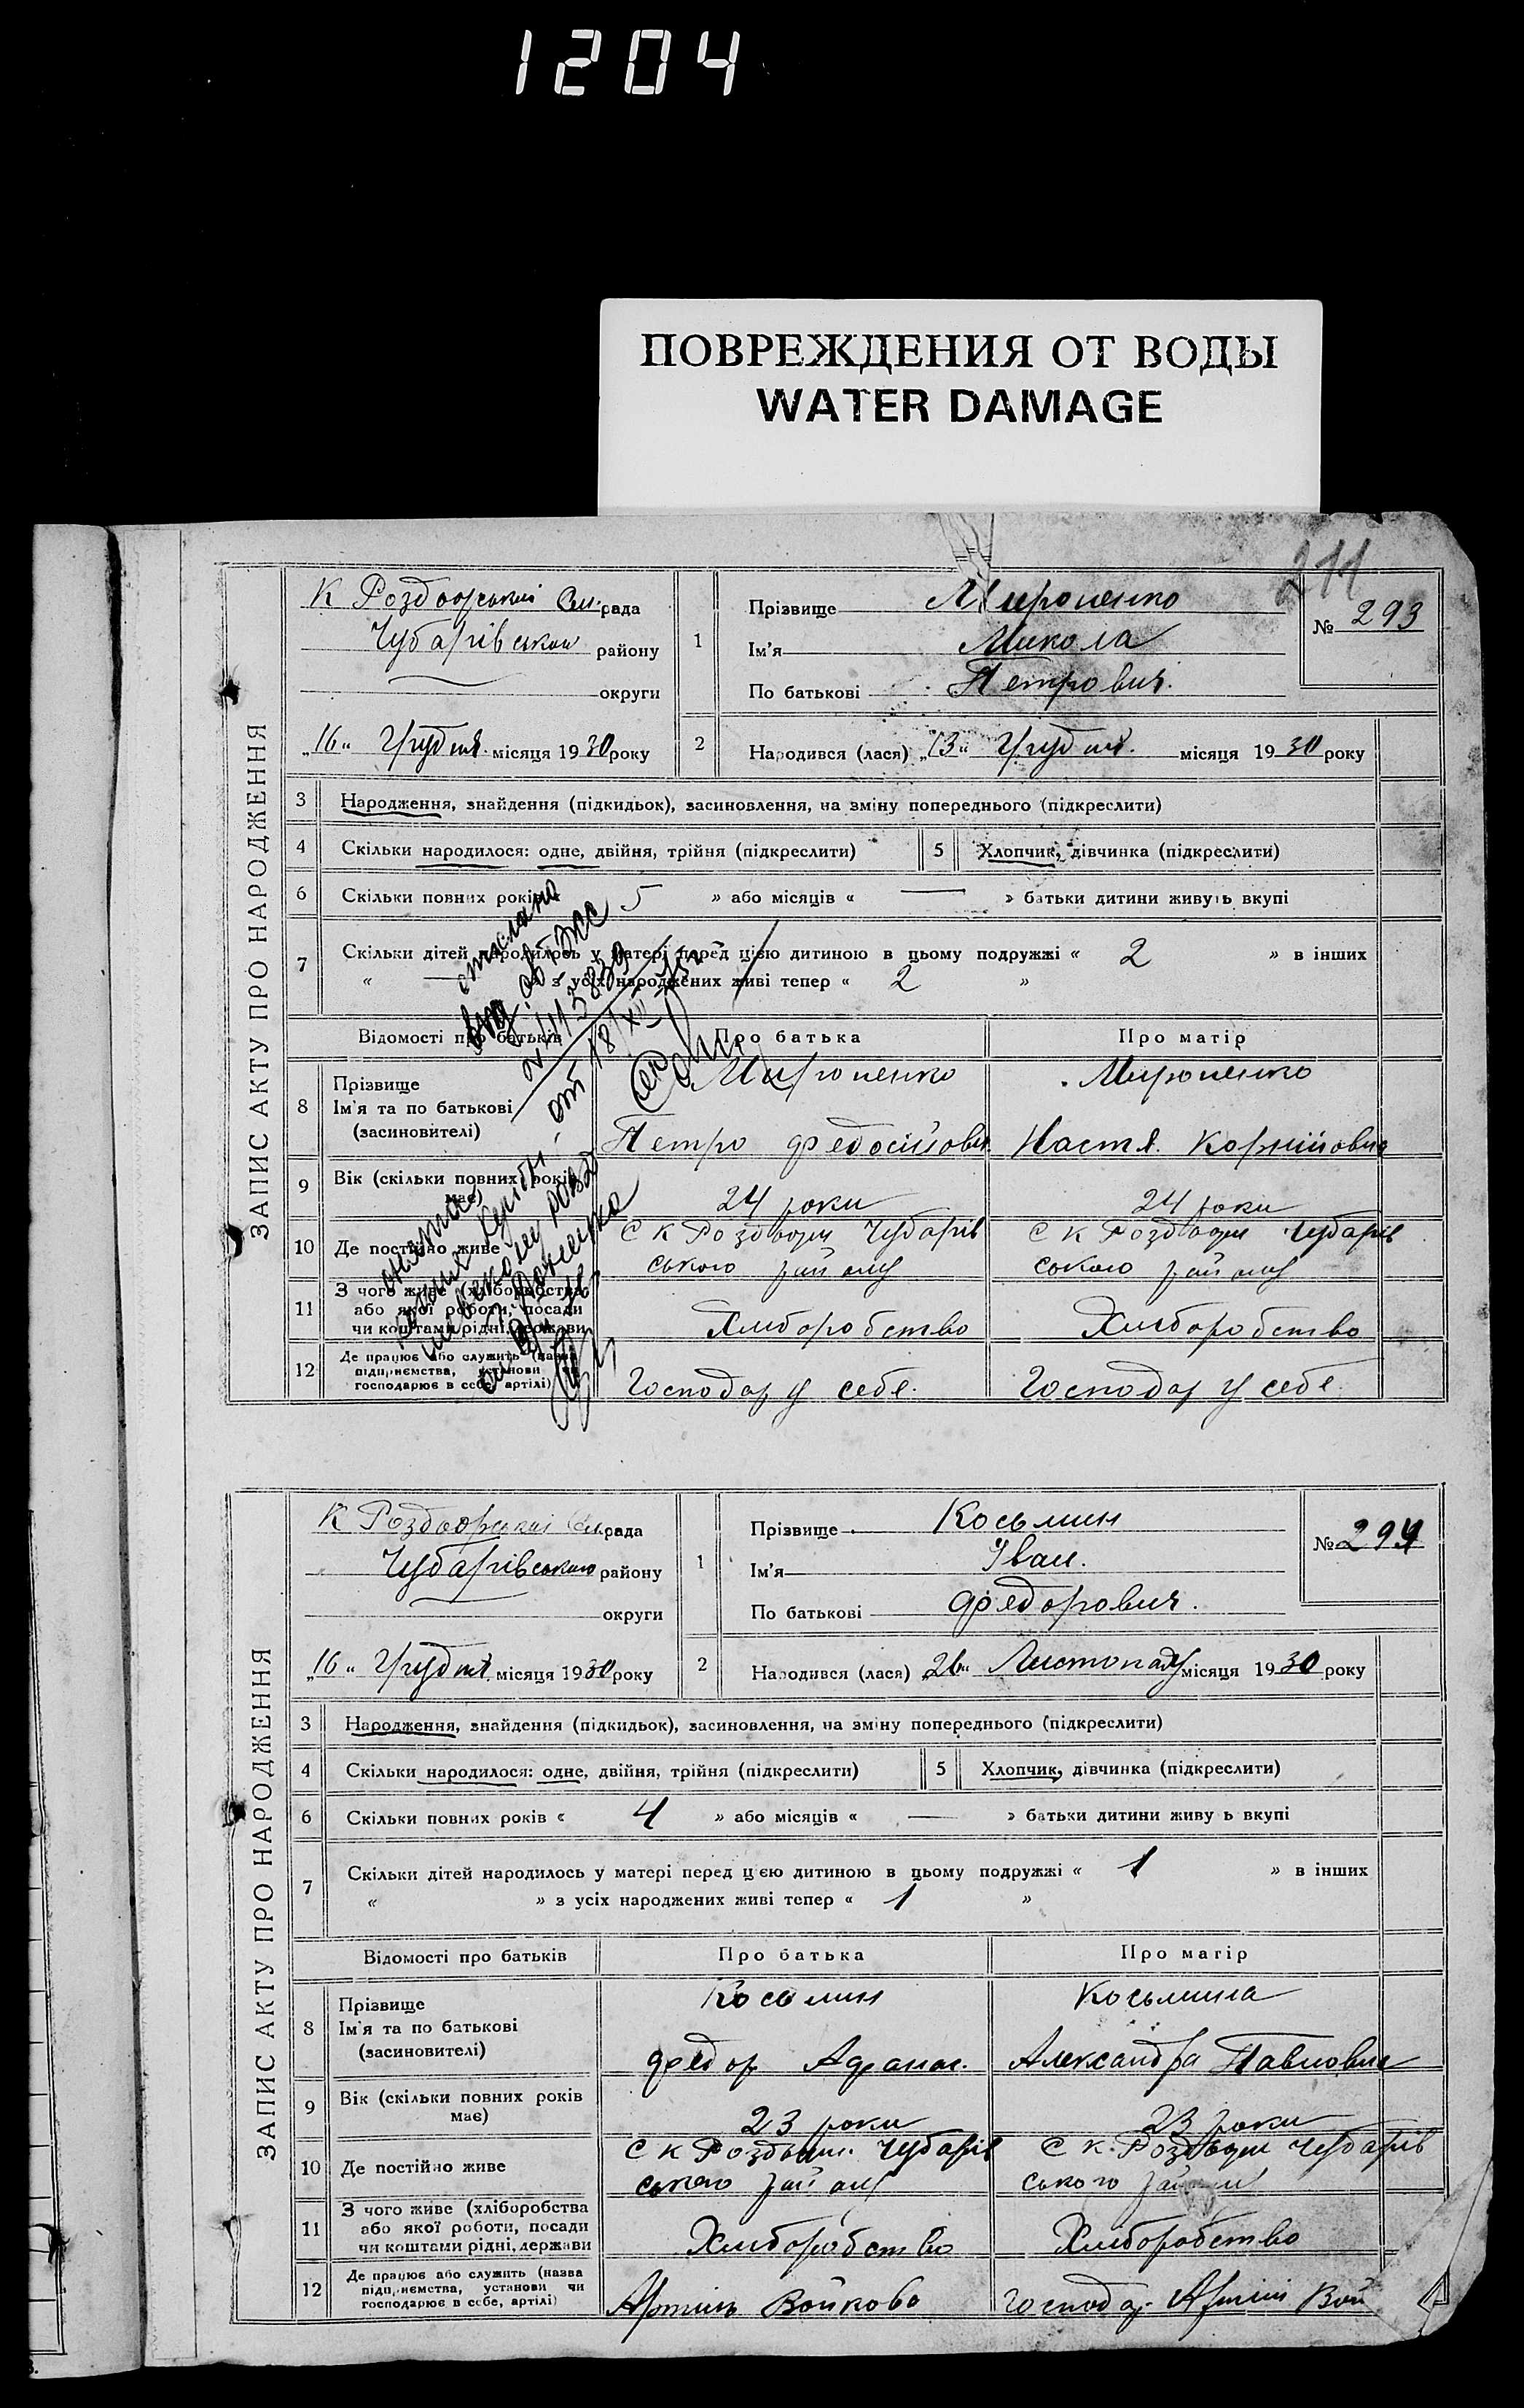 1204
ПОВРЕЖДЕНИЯ ОТ ВОДЫ
WATER DAMAGE
211
ЗАПИС АКТУ ПРО НАРОДЖЕННЯ
К Роздорський рада
Чубарівськом району
округи
„16" Грудня місяця 1930 року
1
Прізвище Мироненко
Ім'я Микола
По батькові Петрович
№ 293
2 Народився (лася) „13" Грудня місяця 1930 року
3 Народження, знайдення (підкидьок), засиновлення, на зміну попереднього (підкреслити)
4 Скільки народилося: одне, двійня, трійня (підкреслити) 5 Хлопчик, дівчинка (підкреслити)
6 Скільки повних років « 5 » або місяців « — » батьки дитини живуть вкупі
7 Скільки дітей народилось у матері перед цією дитиною в цьому подружжі « 2 » в інших
« — » з усіх народжених живі тепер « 2 »
Відомості про батьків Про батька Про матір
8 Прізвище
Ім'я та по батькові
(засиновителі)
Мироненко Мироненко
Петро Федосійови Настя Корнійовна
9 Вік (скільки повних років має) 24 роки 24 роки
10 Де постійно живе С К Роздори Чубарів С К Роздори Чубарів
ського району ського району
11 З чого живе (хліборобства
або якої роботи, посади
чи коштами рідні, держави
Хліборобство Хліборобство
12 Де працює або служить (назва
підприємства, установи чи
господарює в себе, артілі)
Господар у себе Господар у себе
от 18/XII
ЗАПИС АКТУ ПРО НАРОДЖЕННЯ
К Роздорський рада
Чубарівського району
округи
„16" Грудня місяця 1930 року
1
Прізвище Косьмин
Ім'я Іван
По батькові Федорович
№ 294
2 Народився (лася) „26" Листопаду місяця 1930 року
3 Народження, знайдення (підкидьок), засиновлення, на зміну попереднього (підкреслити)
4 Скільки народилося: одне, двійня, трійня (підкреслити) 5 Хлопчик, дівчинка (підкреслити)
6 Скільки повних років « 4 » або місяців « — » батьки дитини живу ь вкупі
7 Скільки дітей народилось у матері перед цією дитиною в цьому подружжі « 1 » в інших
« » з усіх народжених живі тепер « 1 »
Відомості про батьків Про батька Про матір
8 Прізвище
Ім'я та по батькові
(засиновителі)
Косьмин Косьмина
Федор Афанас. Александра Павловна
9 Вік (скільки повних років має) 23 роки 23 роки
10 Де постійно живе С К Роздори Чубарів С К. Роздори Чубарів
ського району ського
11 З чого живе (хліборобства
або якої роботи, посади
чи коштами рідні, держави
Хліборобство Хліборобство
12 Де працює або служить (назва
підприємства, установи чи
господарює в себе, артілі)
Артіль Войково Господар Артілі Вой